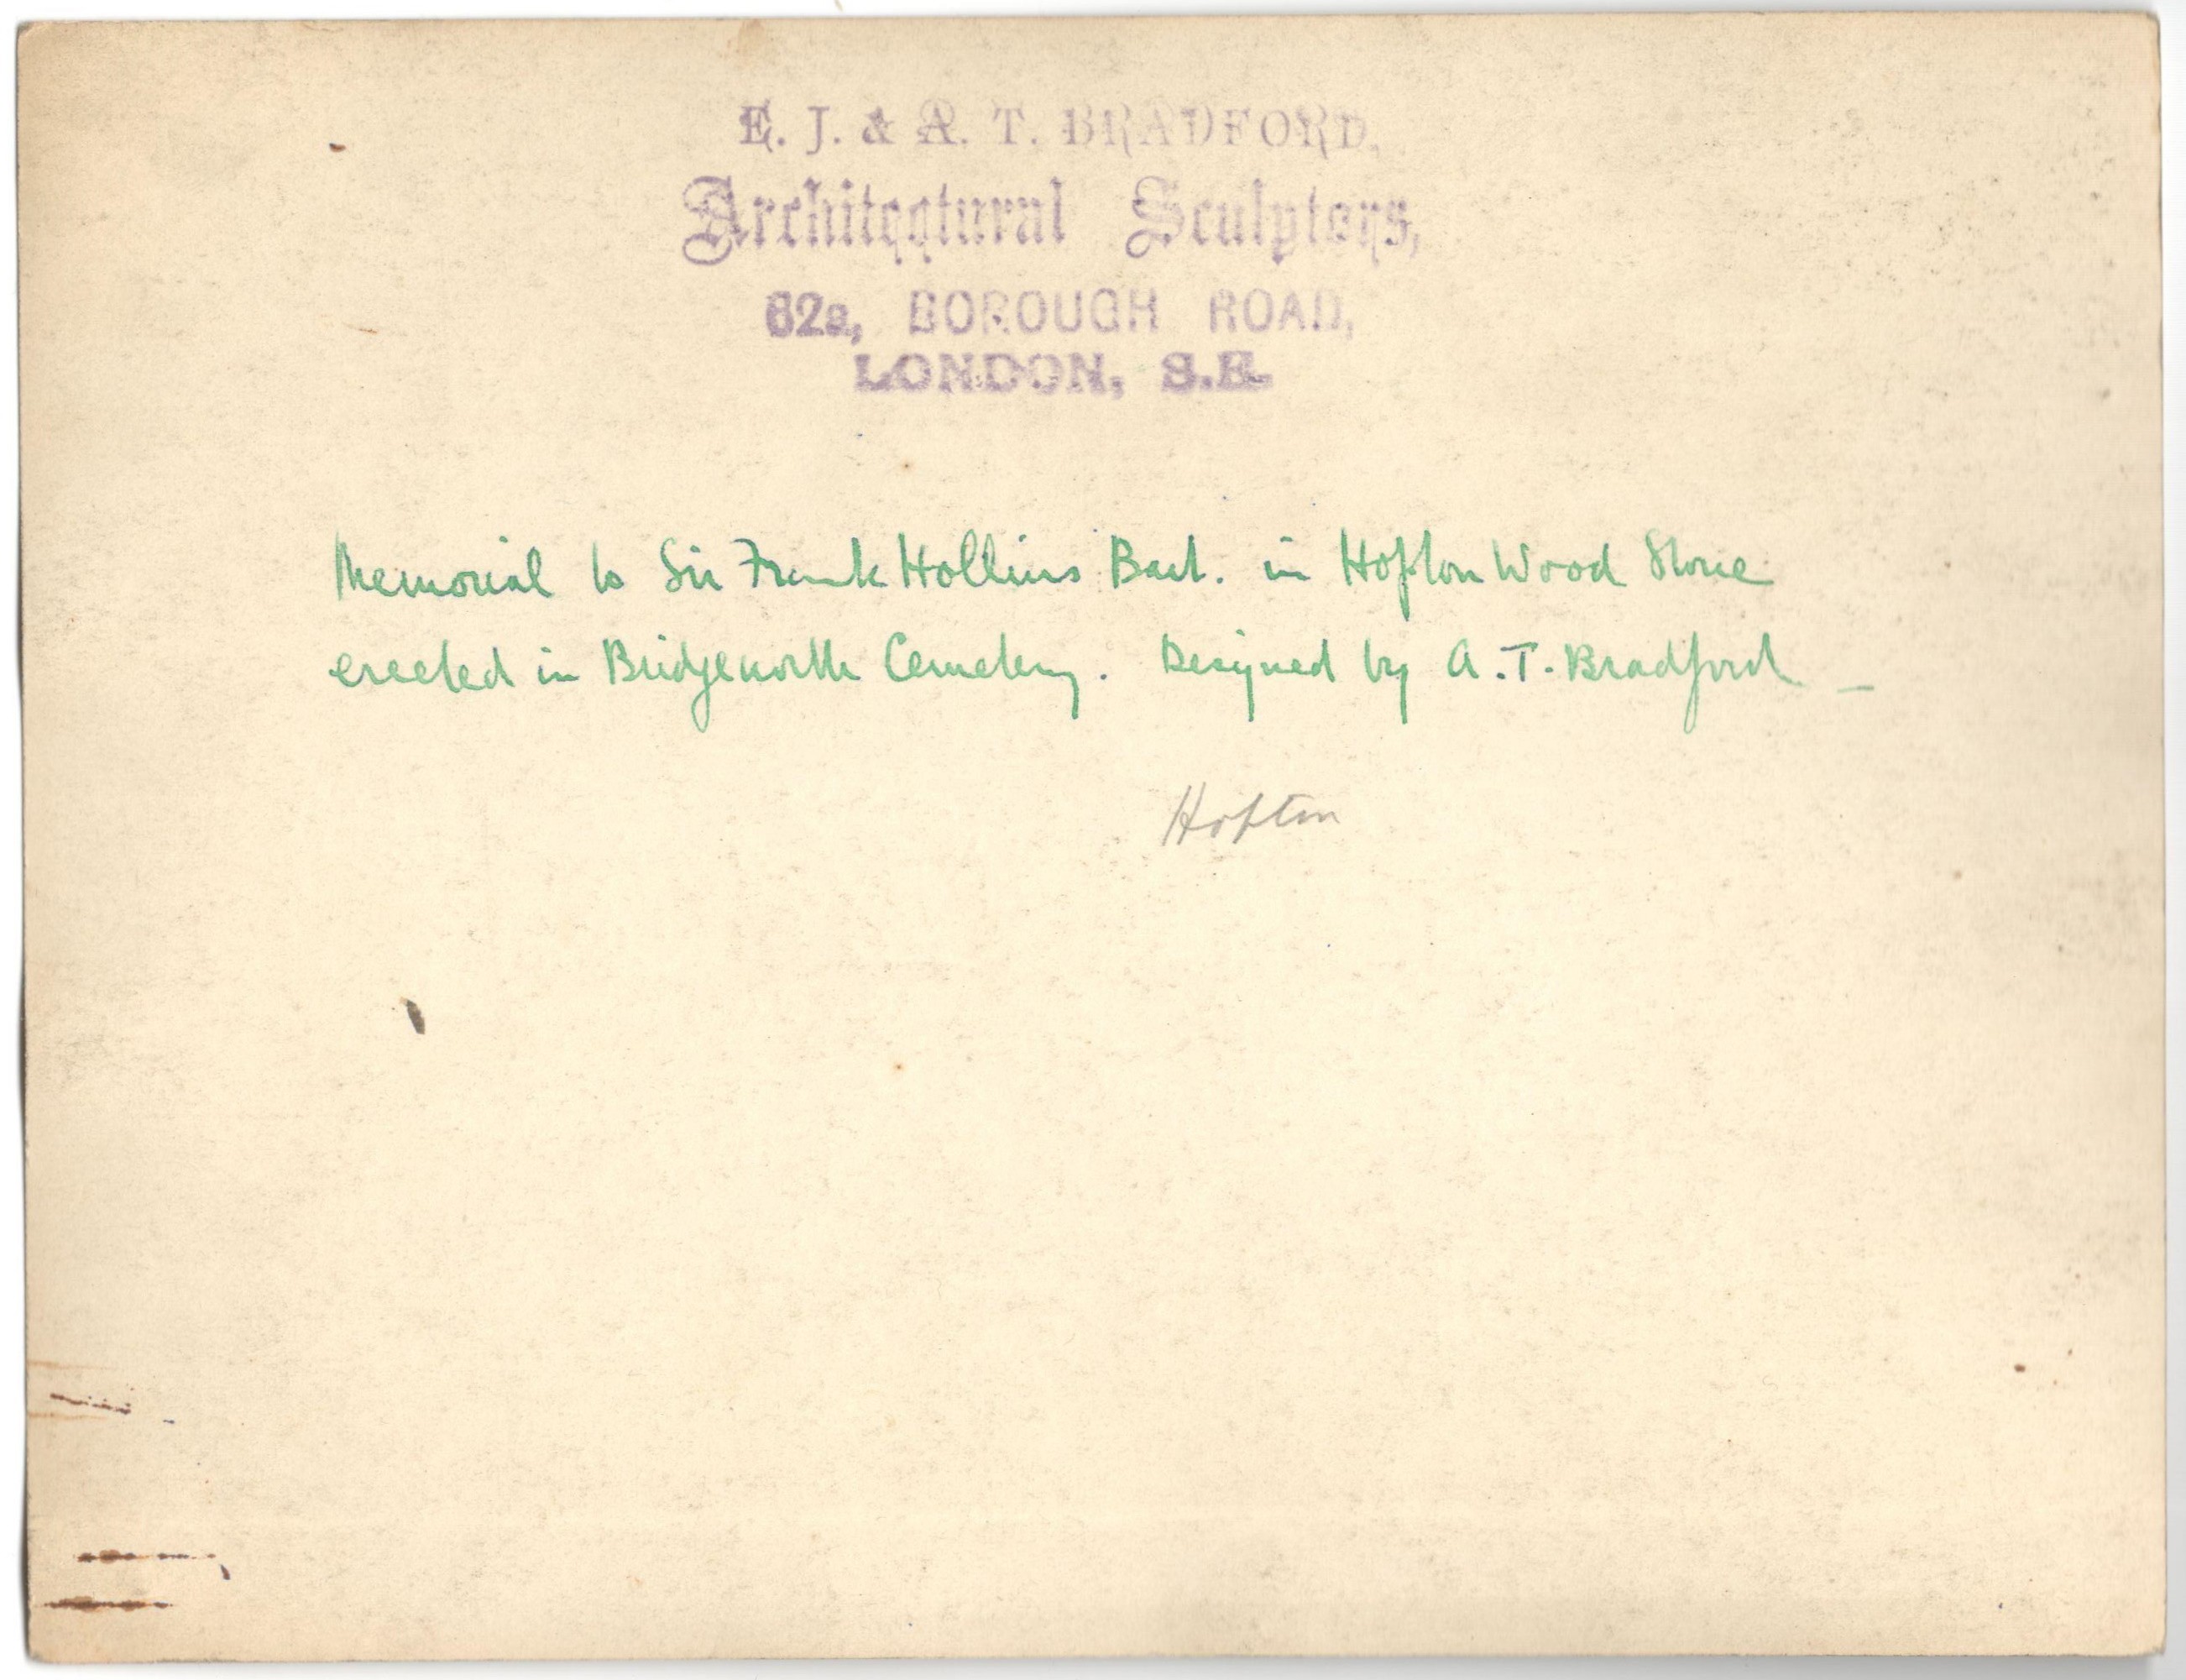 E. J. & A. T. BRADFORD,
Architectural Sculptors,
62a, BOROUGH ROAD,
LONDON, S.E.
Memorial to Sir Frank Hollins Bart. in Hopton Wood Stone
erected in Bridgeworth Cemetery. Designed by A.T. Bradford –
Hopton